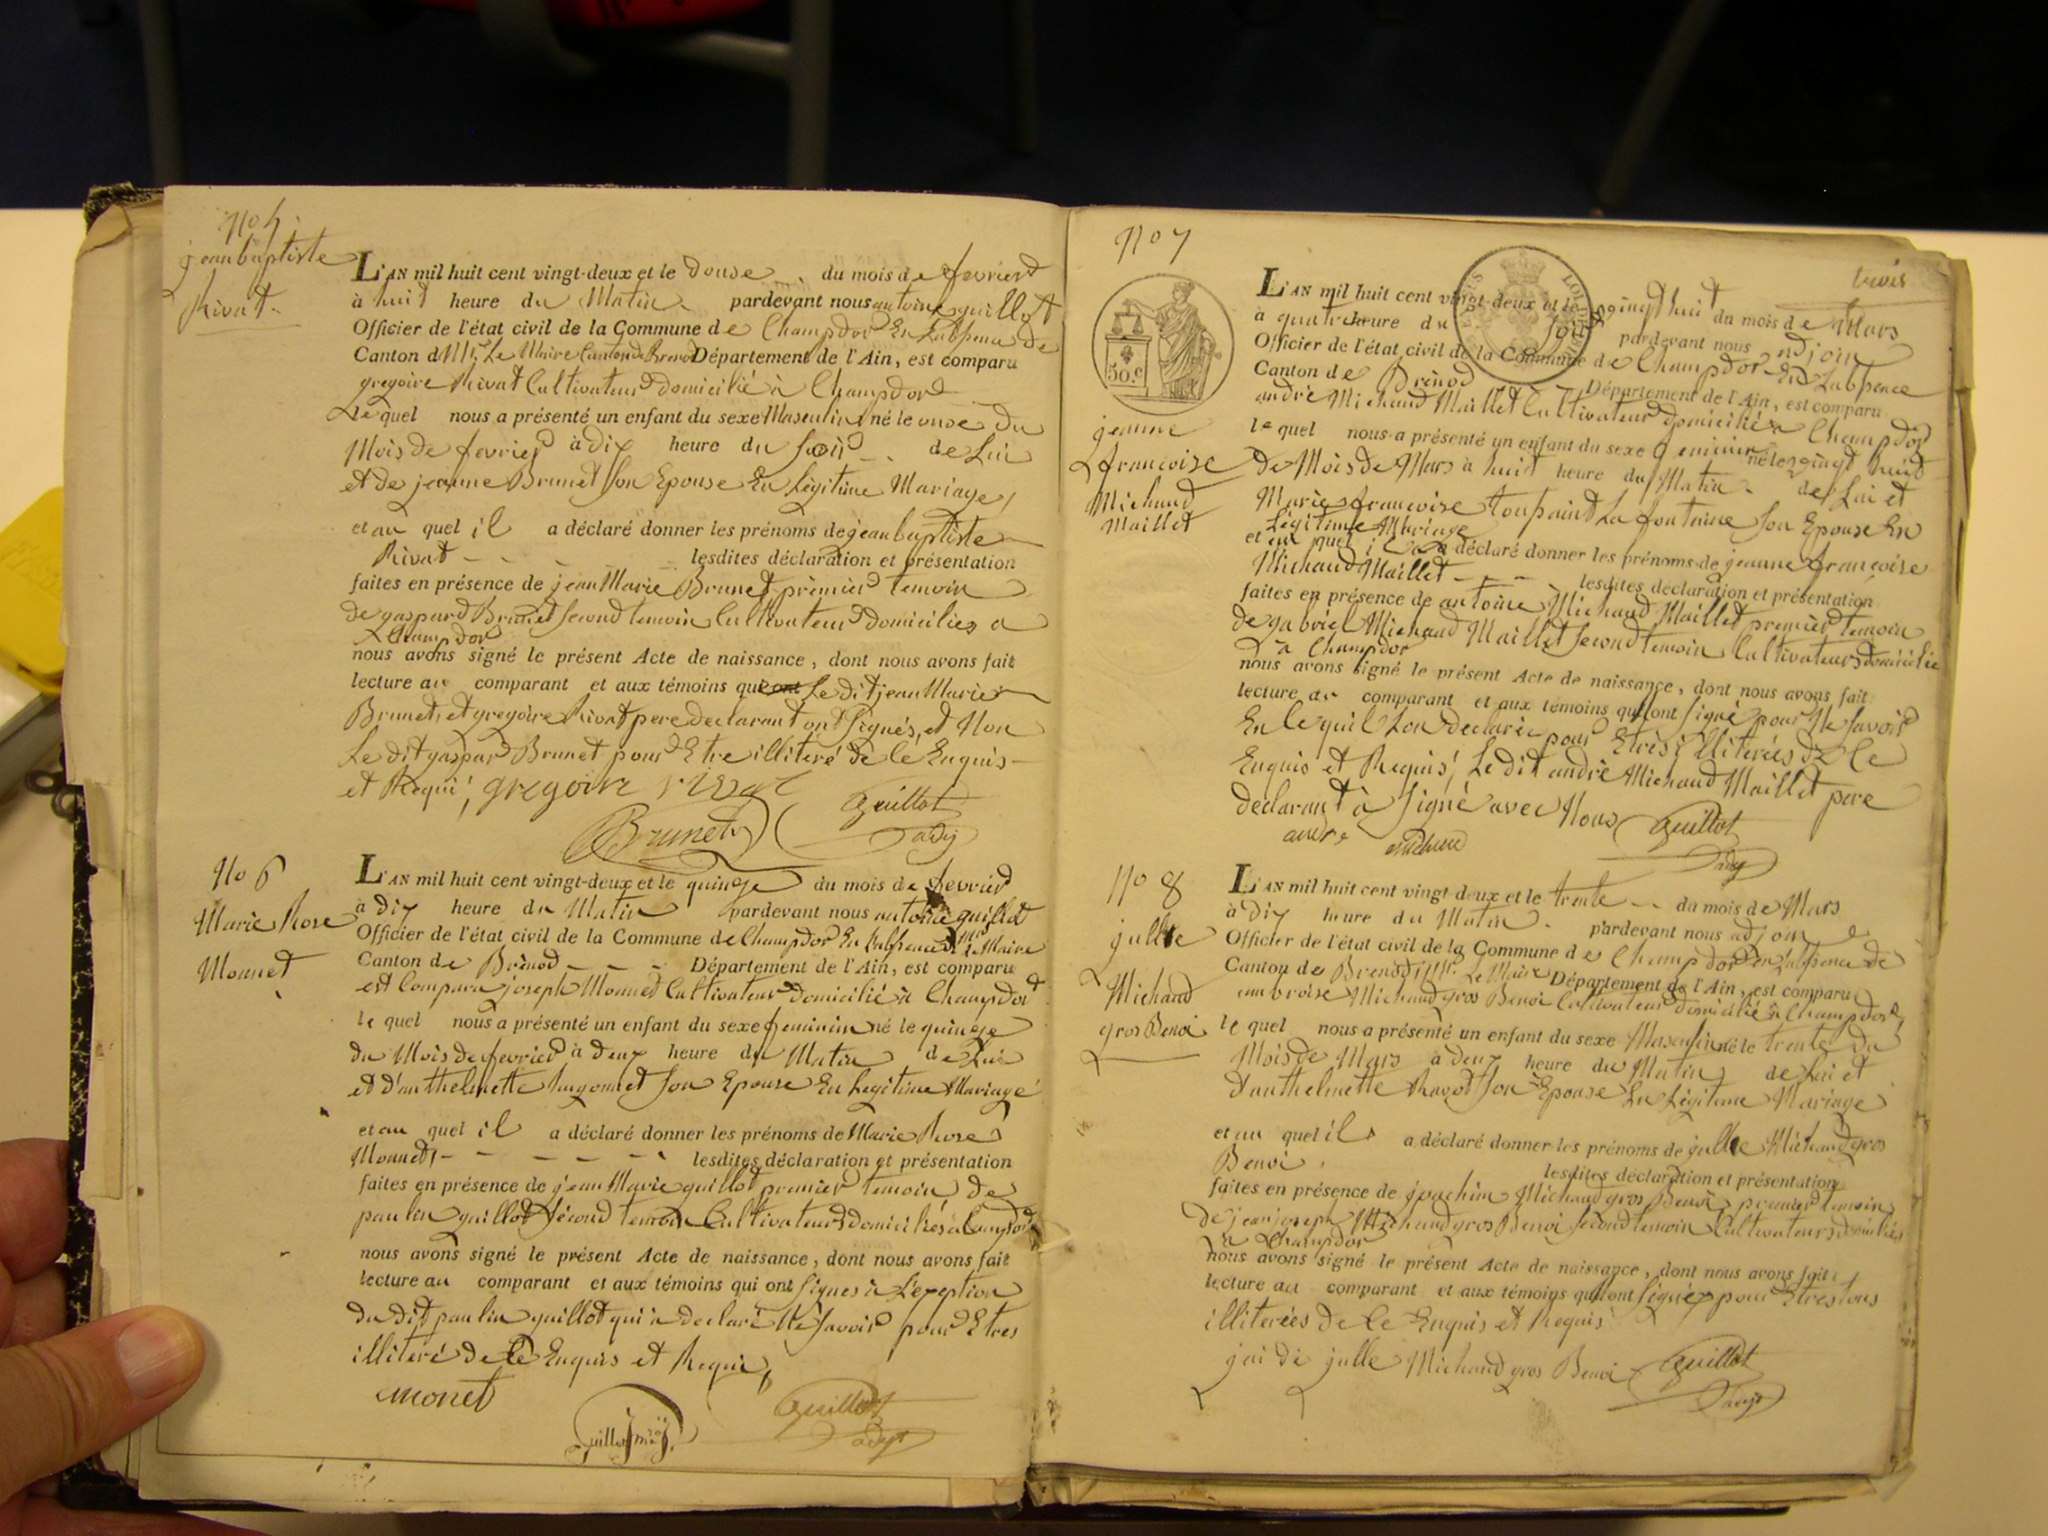 No 5.
jeanbaptiste
Rivat.
L'AN mil huit cent vingt-deux et le douse du mois de fevrier
à huit heure du Matin pardevant nous antoine guillot
Officier de l'état civil de la Commune de Champdor En Labsence de
Canton d Mr Le Maire Canton de Brenod Département de l'Ain, est comparu
gregoire Rivat Cultivateur domicilié à Champdor
Le quel nous a présenté un enfant du sexe Masculin né le onse du
Mois de fevrier à dix heure du soir de Lui
et de jeanne Brunet son Epouse En Légitime Mariage,
et au quel il a déclaré donner les prénoms de jeanbaptiste
Rivat lesdites déclaration et présentation
faites en présence de jean Marie Brunet premier temoin
de gaspard Brunet second temoin Cultivateur domiciliés a
Champdor
nous avons signé le présent Acte de naissance, dont nous avons fait
lecture au comparant et aux témoins qui ont Le dit jean Marie
Brunet, et gregoire Rivat pere declarant ont signés, et Non
Le dit gaspar Brunet pour Etre illiteré de cé Enquis
et Requi, gregoire rivat
Brunet Guillot
adj
No 6
Marie Rose
Monnet
L'AN mil huit cent vingt-deux et le quinze du mois de fevrier
à dix heure du Matin pardevant nous antoine guillot
Officier de l'état civil de la Commune de Champdor En Labsence de Mr Le Maire
Canton de Brénod Département de l'Ain, est comparu
est Comparu joseph Monnet Cultivateur domicilié à Champdor
le quel nous a présenté un enfant du sexe feminin né le quinze
du Mois de fevrier à deux heure du Matin de Lui
et d'anthelmette hugonnet son Epouse En Legitime Mariage
et au quel il a déclaré donner les prénoms de Marie Rose
Monnet, lesdites déclaration et présentation
faites en présence de jean Marie guillot premier temoin, de
paulin guillot second temoin Cultivateur domiciliés a Campdor
nous avons signé le présent Acte de naissance, dont nous avons fait
lecture au comparant et aux témoins qui ont signes à L'exeption
du dit paulin guillot qui a declaré Ne savoir pour Etres
illiteré de Ce Enquis et Requi,
monet
Guillot Guillot
adjt
No 7
trois
50.c
jeanne
francoise
Michaud
Maillet
L'AN mil huit cent vingt-deux et le vingt huit du mois de Mars
à quatre heure du soir pardevant nous adjoin
Officier de l'état civil de la Commune de Champdor En Labsence
Canton de Brénod Département de l'Ain, est comparu
andré Michaud Maillet Cultivateur domicilié a Champdor
le quel nous a présenté un enfant du sexe feminin né le vingt huit
de Mois de Mars à huit heure du Matin de Lui et
Marie francoise toussaint La fontaine son Epouse En
Légitime Mariage
et au quel il a déclaré donner les prénoms de jeanne francoise
Michaud Maillet lesdites déclaration et présentation
faites en présence de antoine Michaud Maillet premier temoin
de gabriel Michaud Maillet second temoin Cultivateurs domicilié
à Champdor
nous avons signé le présent Acte de naissance, dont nous avons fait
lecture au comparant et aux témoins qui ont signé pour Ne savoir
En Ce quil Lon declaré pour Etres illiterés de Ce
Enquis et Requis, Le dit andré Michaud Maillet pere
declarant à signé avec Nous Guillot
andre michaud adj
No 8
julle
Michaud
gros Benoi
L'AN mil huit cent vingt-deux et le trente du mois de Mars
à dix heure du Matin pardevant nous adjoin
Officier de l'état civil de la Commune de Champdor En Labsence de
Canton de Brenod Mr. Le Maire Département de l'Ain, est comparu
ambroise Michaud gros Benoi Cultivateur domicilié à Champdor,
le quel nous a présenté un enfant du sexe Masculin né le trente du
Mois de Mars à deux heure du Matin de Lui et
d'anthelmette Ravot son Epouse En Légitime Mariage
et au quel il a déclaré donner les prénoms de julle Michaud gros
Benoi lesdites déclaration et présentation
faites en présence de joachim Michaud gros Benoi premier temoin
de jean joseph Michaud gros Benoi second temoin Cultivateurs domiciliés
a Champdor
nous avons signé le présent Acte de naissance, dont nous avons fait
lecture au comparant et aux témoins qui ont signé pour Etres tous
illiterées de Ce Enquis et Requis
jai di julle Michaud gros Benoi Guillot
adjt